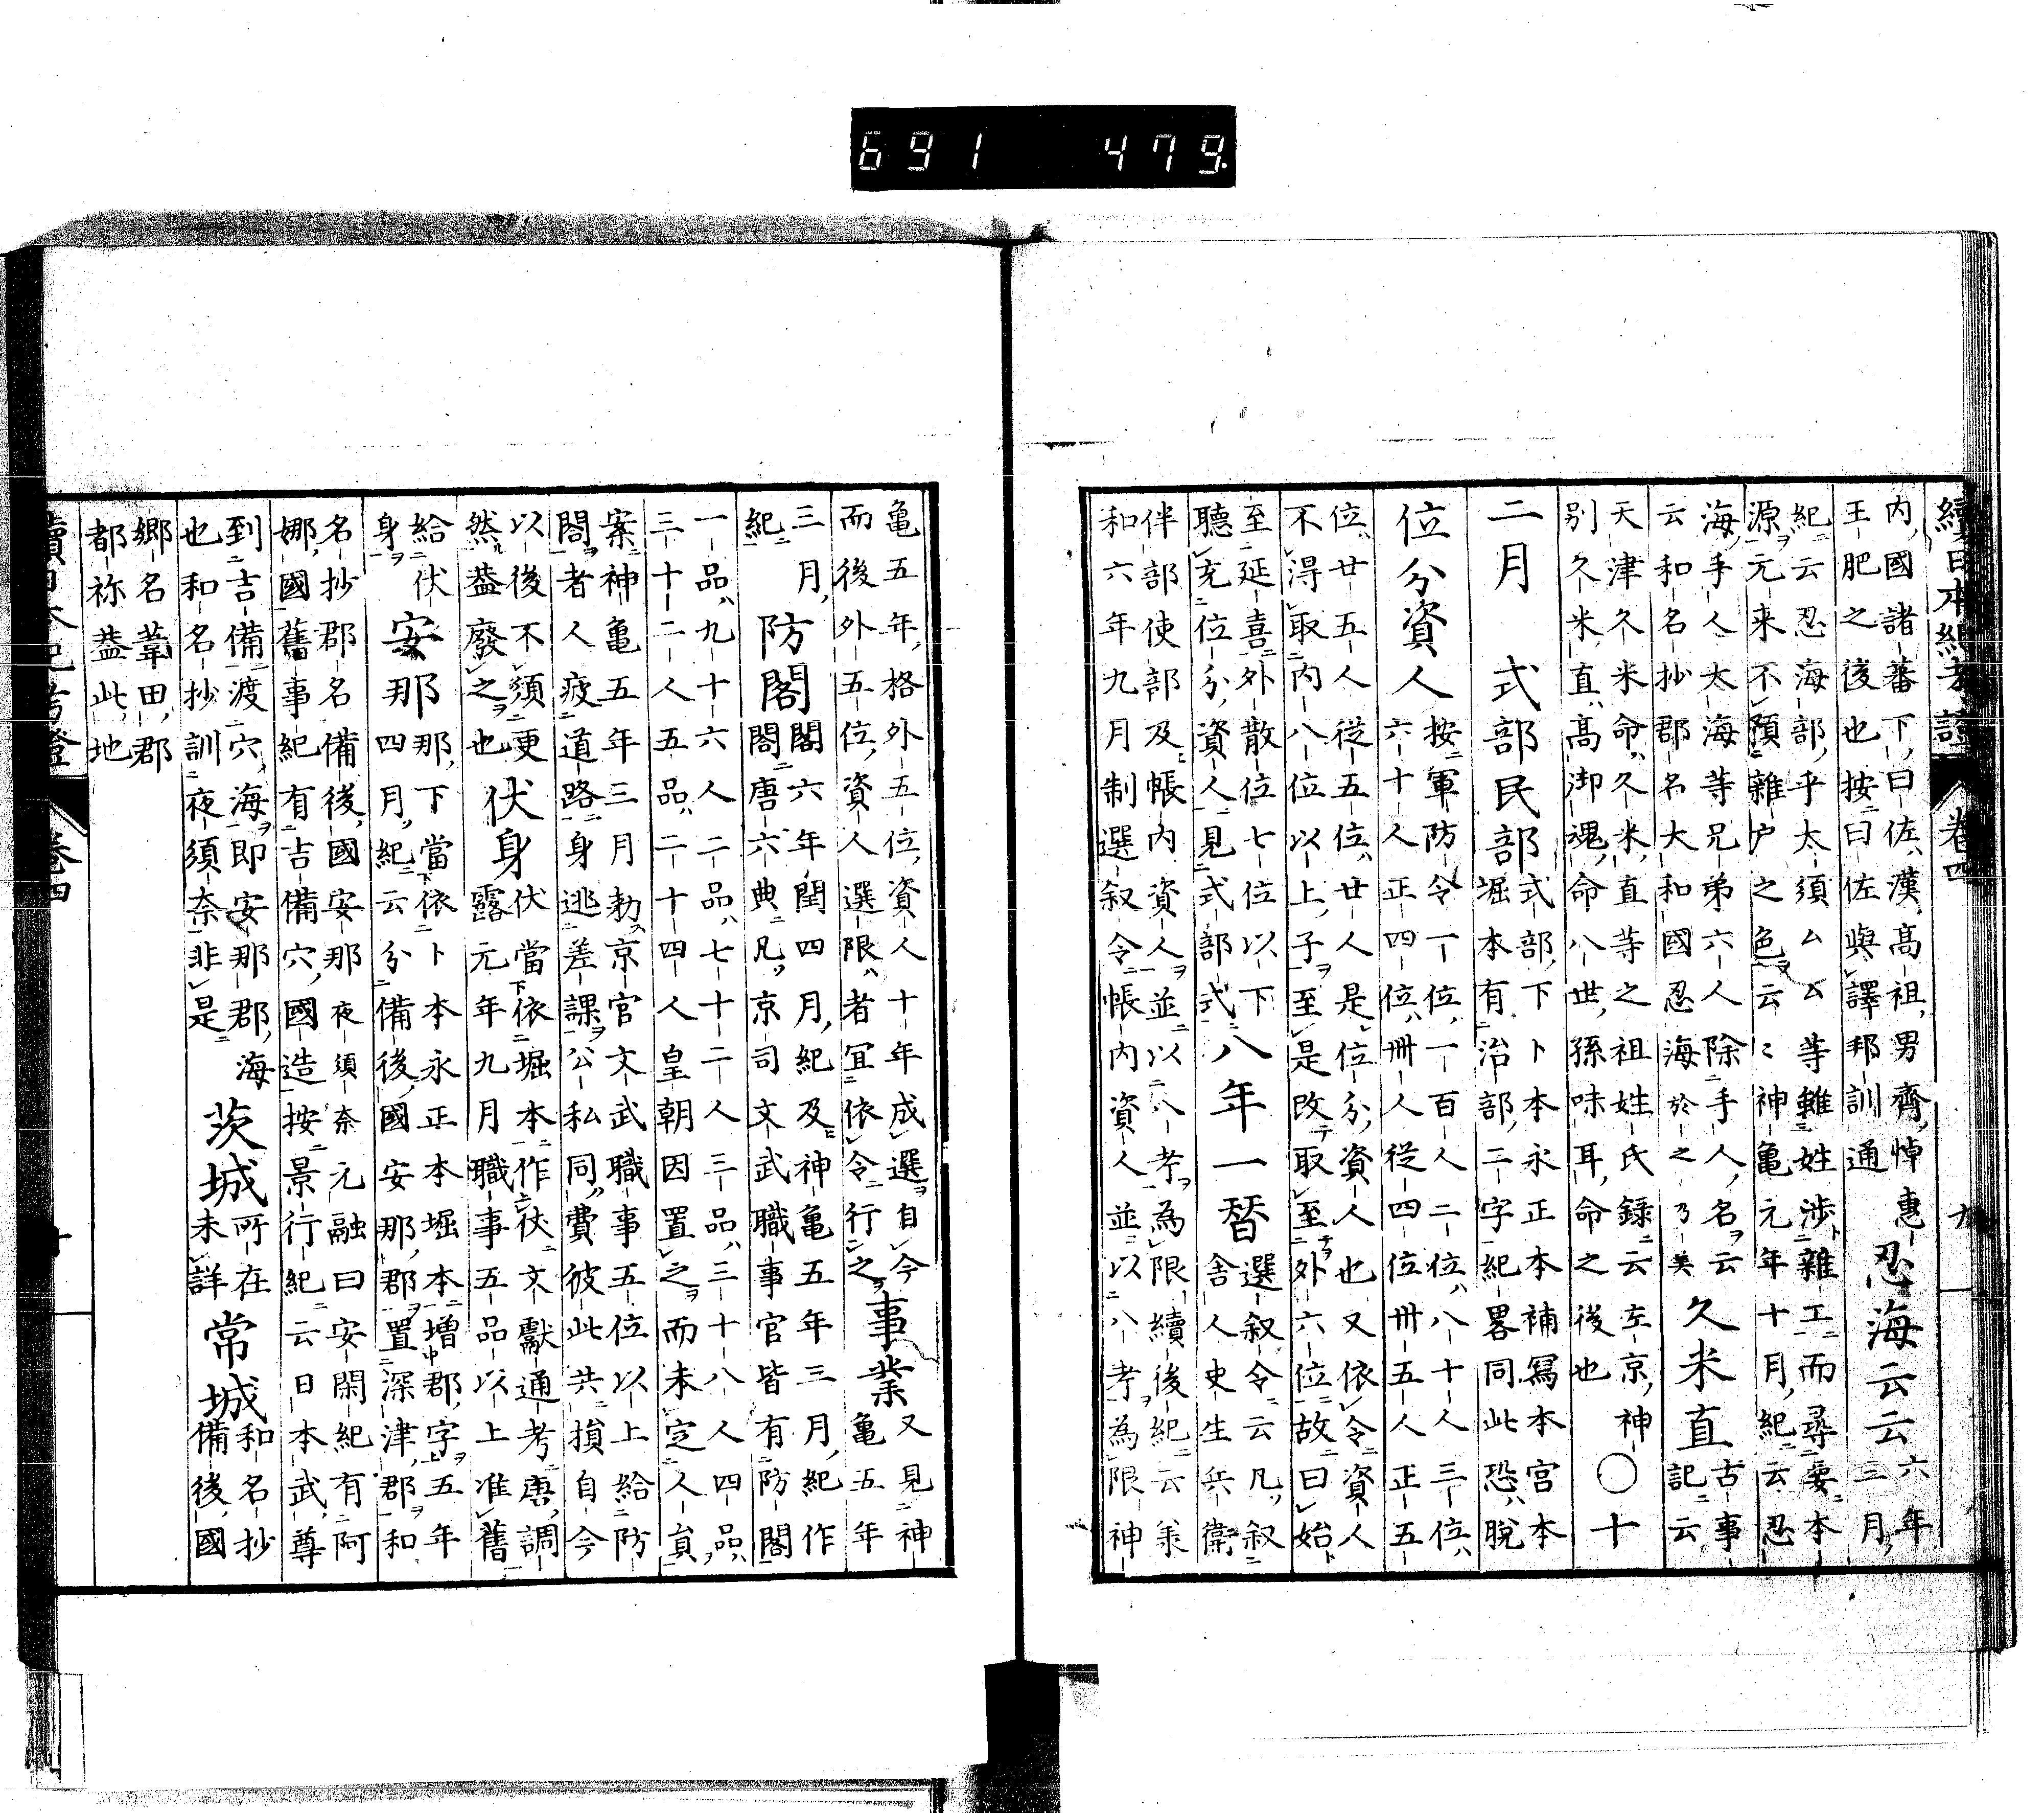 續日本紀考證 卷四 九
内國諸蕃下曰佐漢高祖男齊悼惠
王肥之後也按曰佐與譯邦訓通
忍海云云
六年
三月
紀云忍海部乎太須ムム等雖姓渉雜工而尋要本
源元来不預雜户之色云〻神亀元年十月紀云忍
海手人太海等兄弟六人除手人名云
云和名抄郡名大和國忍海於之乃美
久米直
古事
記云
天津久米命久米直等之祖姓氏録云左京神
别久米直髙御魂命八世孫味耳命之後也
○十
二月 式部民部
式部下卜本永正本補寫本宮本
堀本有治部二字紀畧同此恐脱
位分資人
按軍防令一位一百人二位八十人三位
六十人正四位卌人從四位卅五人正五
位廿五人從五位廿人是位分資人也又依令資人
不得取内八位以上子至是改取至外六位故曰始
至延喜外散位七位以下
聽充位分資人見式部式
八年一替
選叙令云凡叙
舎人史生兵衛
伴部使部及帳内資人並以八考為限續後紀云羕
和六年九月制選叙令帳内資人並以八考為限神
亀五年格外五位資人十年成選自今
而後外五位資人選限者冝依令行之
事業
又見神
亀五年
三月
紀
防閤
閤六年閏四月紀及神亀五年三月紀作
閤唐六典凡京司文武職事官皆有防閤
一品九十六人二品七十二人三品三十八人四品
三十二人五品二十四人皇朝因置之而未定人貟
案神亀五年三月勅京官文武職事五位以上給防
閤者人疲道路身逃差課公私同費彼此共損自今
以後不須更
然葢廢之也
伏身
伏當依堀本作仗文獻通考唐調
露元年九月職事五品以上准舊
給伏
身
安那
那下當依卜本永正本堀本増郡字五年
四月紀云分備後國安那郡置深津郡和
名抄郡名備後國安那夜須奈元融曰安閑紀有阿
娜國舊事紀有吉備穴國造按景行紀云日本武尊
到吉備渡穴海即安那郡海
也和名抄訓夜須奈非是
茨城
所在
未詳
常城
和名抄
備後國
郷名葦田郡
都祢葢此地
續日本紀考證 卷四